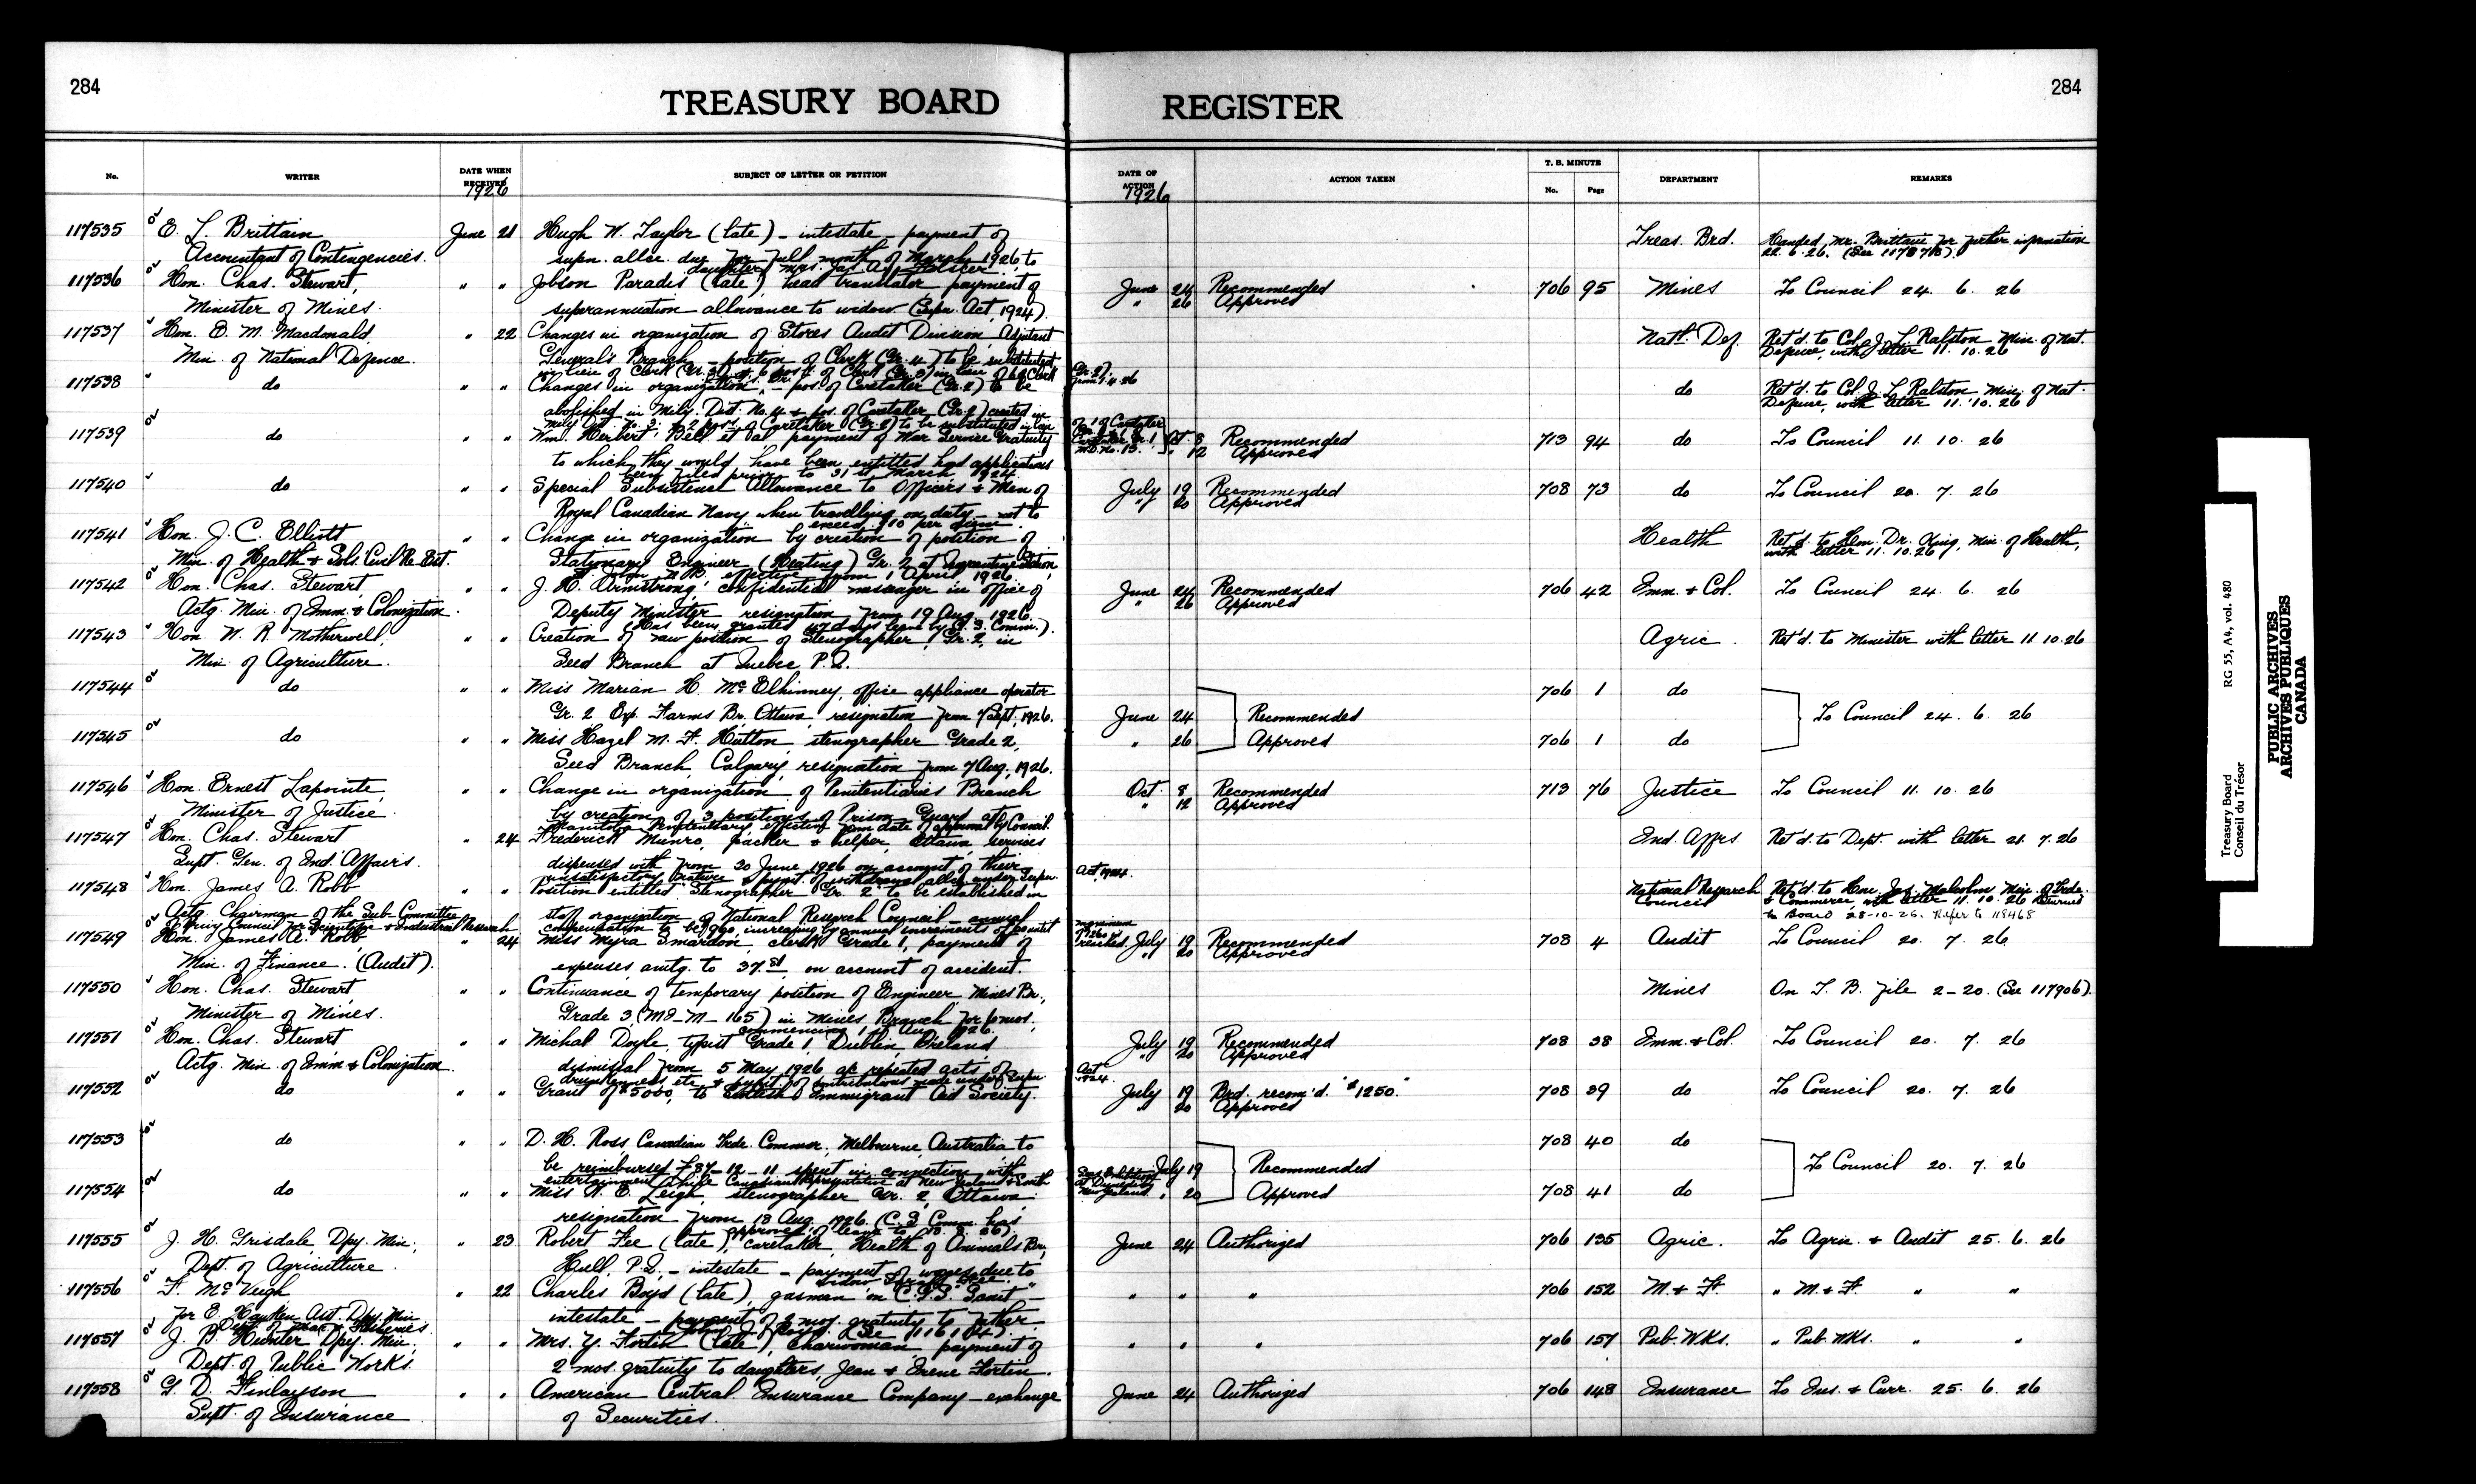 284
TREASURY BOARD REGISTER
284
No. WRITER DATE WHEN RECEIVED 1926 SUBJECT OF LETTER OR PETITION DATE OF ACTION 1926 ACTION TAKEN T. B. MINUTE No. Page DEPARTMENT REMARKS
117535 E. L. Brittain June 21 Hugh W. Taylor (late) - intestate - payment of Treas. Brd. Handed Mr. Brittain for further information
Accountant of Contingencies. supn. allce. due for full month of March 1926 to 22. 6. 26. (See 117878).
daughter, Mrs. Jas. A.
117536 Hon. Chas. Stewart, " " Jobson Paradis (late) head translator payment of June 24 Recommended 706 95 Mines To Council 24. 6. 26
Minister of Mines. superannuation allowance to widow (Supn. Act, 1924). " 26 Approved
117537 Hon. E. M. Macdonald, " 22 Changes in organization of Stores Audit Division, Adjutant Nat'l. Def. Ret'd. to Col. J. L. Ralston Min. of Nat.
Min. of National Defence. General's Branch - position of Clerk (Gr. 4) to be substituted Defence, with letter 11. 10. 26
in lieu of Clerk (Gr. 3) & 6 pos'ns of Clerk (Gr. 3) in lieu of 6 of Clerk (Gr. 2), from 1.4.26
117538 do " " Changes in organization, - pos. of Caretaker (Gr. 2) to be do Ret'd. to Col. J. L. Ralston Min. of Nat.
abolished in Mily. Dist. No. 4 & pos. of Caretaker (Gr. 2) created in Defence, with letter 11. 10. 26
Mily. Dist. No. 3; & 2 posns. of Caretaker (Gr. 2) to be substituted in lieu of 1 of Caretaker Caretaker Gr. 1, M.D. No. 13.
117539 do " " Wm. Herbert Bell et al payment of War Service Gratuity Oct. 8 Recommended 713 94 do To Council 11. 10. 26
to which they would have been entitled had applications " 12 Approved
been filed prior to 31st March 1924.
117540 do " " Special Subsistence Allowance to Officers & Men of July 19 Recommended 708 73 do To Council 20. 7. 26
Royal Canadian Navy when travelling on duty - not to " 20 Approved
exceed $10 per diem.
117541 Hon. J. C. Elliott " " Change in organization by creation of position of Health Ret'd. to Hon. Dr. King, Min. of Health,
Min. of Health & Sols. Civil Re-Est. Stationary Engineer (Heating) Gr. 2 at Quarantine Station, with letter 11. 10. 26
N.B., effective from 1 April 1926
117542 Hon. Chas. Stewart, " " J. H. Armstrong, confidential messenger in office of June 24 Recommended 706 42 Imm. & Col. To Council 24. 6. 26
Actg. Min. of Imm. & Colonization. Deputy Minister resignation from 19 Aug. 1926. " 26 Approved
(Has been granted 47 days leave by C. S. Comm.).
117543 Hon. W. R. Motherwell, " " Creation of new position of Stenographer, Gr. 2, in Agric. Ret'd. to Minister with letter 11. 10. 26
Min. of Agriculture. Seed Branch at Quebec P.Q.
117544 do " " Miss Marian H. McElhinney, office appliance operator 706 1 do
Gr. 2 Exp. Farms Br. Ottawa, resignation from 7 Sept. 1926. June 24 Recommended To Council 24. 6. 26
117545 do " " Miss Hazel M. F. Hutton, stenographer Grade 2, " 26 Approved 706 1 do
Seed Branch, Calgary, resignation from 7 Aug. 1926.
117546 Hon. Ernest Lapointe, " " Change in organization of Penitentiaries Branch Oct. 8 Recommended 713 76 Justice To Council 11. 10. 26
Minister of Justice. by creation of 3 positions of Prison Guard at " 12 Approved
Manitoba Penitentiary effective from date of approval by Council.
117547 Hon. Chas. Stewart " 24 Frederick Munro, packer & helper, Ottawa, services Ind. Affrs. Ret'd. to Dept. with letter 21. 7. 26
Supt. Gen. of Ind. Affairs. dispensed with from 30 June 1926 on account of their
unsatisfactory nature & paymt. of withdrawal allce. under Supn. Act, 1924.
117548 Hon. James A. Robb " " Position entitled "Stenographer Gr. 2" to be established in National Research Council Ret'd. to Hon. Jas. Malcolm Min. of Trde.
Actg. Chairman of the Sub-Committee staff organization of National Research Council - annual & Commerce, with letter 11. 10. 26 Returned
of Privy Council for Scientific & Industrial Research compensation to be 960, increasing by annual increments of 60 until maximum of 1260 is reached. to Board 28-10-26. Refer to 118468
117549 Hon. James A. Robb " 24 Miss Myra Smardon, clerk Grade 1, payment of July 19 Recommended 708 4 Audit To Council 20. 7. 26
Min. of Finance. (Audit). expenses amtg. to 37.81 on account of accident. " 20 Approved
117550 Hon. Chas. Stewart " " Continuance of temporary position of Engineer, Mines Br., Mines On T. B. File 2-20. (See 117906).
Minister of Mines. Grade 3 (MI-M-165) in Mines Branch for 6 mos.
commencing 1st Aug. 1926.
117551 Hon. Chas. Stewart " " Michal Doyle, typist Grade 1, Dublin Ireland July 19 Recommended 708 38 Imm. & Col. To Council 20. 7. 26
Actg. Min. of Imm. & Colonization dismissal from 5 May 1926 a/c repeated acts of " 20 Approved
drunkenness, etc., & paymt. of contributions made under Supn. Act 1924.
117552 do " " Grant of $5000, to Scottish Immigrant Aid Society. July 19 Brd. recom'd. "$1250." 708 39 do To Council 20. 7. 26
" 20 Approved
117553 do " " D. H. Ross, Canadian Trde. Commr., Melbourne, Australia to 708 40 do
be reimbursed £87-12-11 spent in connection with July 19 Recommended To Council 20. 7. 26
entertainment while Canadian Representative at New Zealand & South Seas Exhibition at Dunedin New Zealand.
117554 do " " Miss W. E. Leigh, stenographer Gr. 2, Ottawa " 20 Approved 708 41 do
resignation from 18 Aug. 1926. (C. S. Comm. has
approved of leave to 18. 8. 26).
117555 J. H. Grisdale, Dpy. Min., " 23 Robert Fee (late), caretaker, Health of Animals Br., June 24 Authorized 706 135 Agric. To Agric. & Audit 25. 6. 26
Dept. of Agriculture. Hull, P.Q. - intestate - payment of wages due to
widow
117556 F. McVeigh " 22 Charles Boyd (late), gasman on C.G.S. "Scout" - " " " 706 152 M. & F. " M. & F. " "
for E. Hawken Ast. Dpy. Min. intestate - payment of 2 mos. gratuity to father
Dept. of Mar. & Fisheries
117557 J. B. Hunter Dpy. Min., " " Mrs. Y. Fortin (late), charwoman payment of " " " 706 157 Pub. Wks. " Pub. Wks. " "
Dept. of Public Works. 2 mos. gratuity to daughters, Jean & Irene Fortin.
117558 G. D. Finlayson " " American Central Insurance Company - exchange June 24 Authorized 706 148 Insurance To Ins. & Curr. 25. 6. 26
Supt. of Insurance of Securities.
Treasury Board RG 55, A4, vol. 480
Conseil du Trésor
PUBLIC ARCHIVES
ARCHIVES PUBLIQUES
CANADA